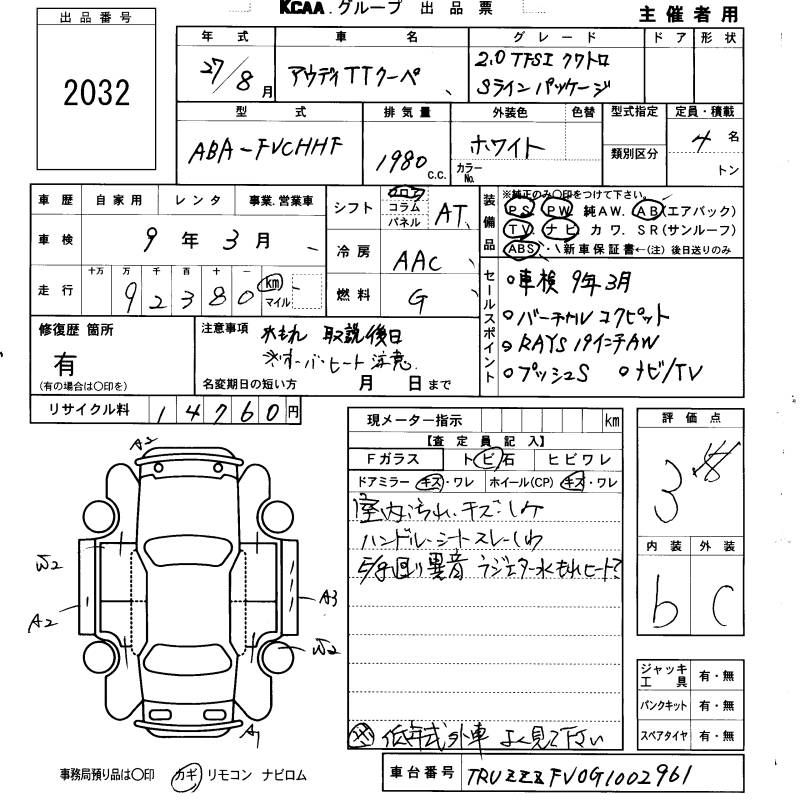 KCAA.グループ 出品票
主催者用
出品番号
2032
年式 車名 グレード ドア 形状
27/8月 アウディTTクーペ 2.0 TFSI クワトロ
Sラインパッケージ
型式 排気量 外装色 色替 型式指定 定員・積載
ABA-FVCHHF 1980 C.C. ホワイト 4名
カラーNo. 類別区分 トン
車歴 自家用 レンタ 事業.営業車
車検 9年3月
走行 十万 万 千 百 十 一
92380 km マイル
シフト フロア コラム パネル AT
冷房 AAC
燃料 G
装備品
※純正のみ〇印をつけて下さい。
PS PW 純AW. AB(エアバック)
TV ナビ カワ. SR(サンルーフ)
ABS・新車保証書←(注) 後日送りのみ
セールスポイント
車検 9年3月
バーチャルコクピット
RAYS 19インチAW
プッシュS ナビ/TV
修復歴 箇所
有
(有の場合は〇印を)
注意事項
水もれ 取説後日
※オーバーヒート 注意.
名変期日の短い方 月 日まで
リサイクル料 14760円
現メーター指示 km
【査定員記入】
Fガラス トビ石 ヒビワレ
ドアミラー キズ・ワレ ホイール(CP) キズ・ワレ
室内汚れ.キズ.コケ
ハンドル・シートスレ・しわ
E/g回り異音 ラジエター水もれヒート?
低年式外車 よく見て下さい
評価点
3
内装 外装
b C
ジャッキ工具 有・無
パンクキット 有・無
スペアタイヤ 有・無
A2
W2
A2
A3
W2
A1
事務局預り品は〇印 カギ リモコン ナビロム
車台番号 TRUZZZFV0G1002961